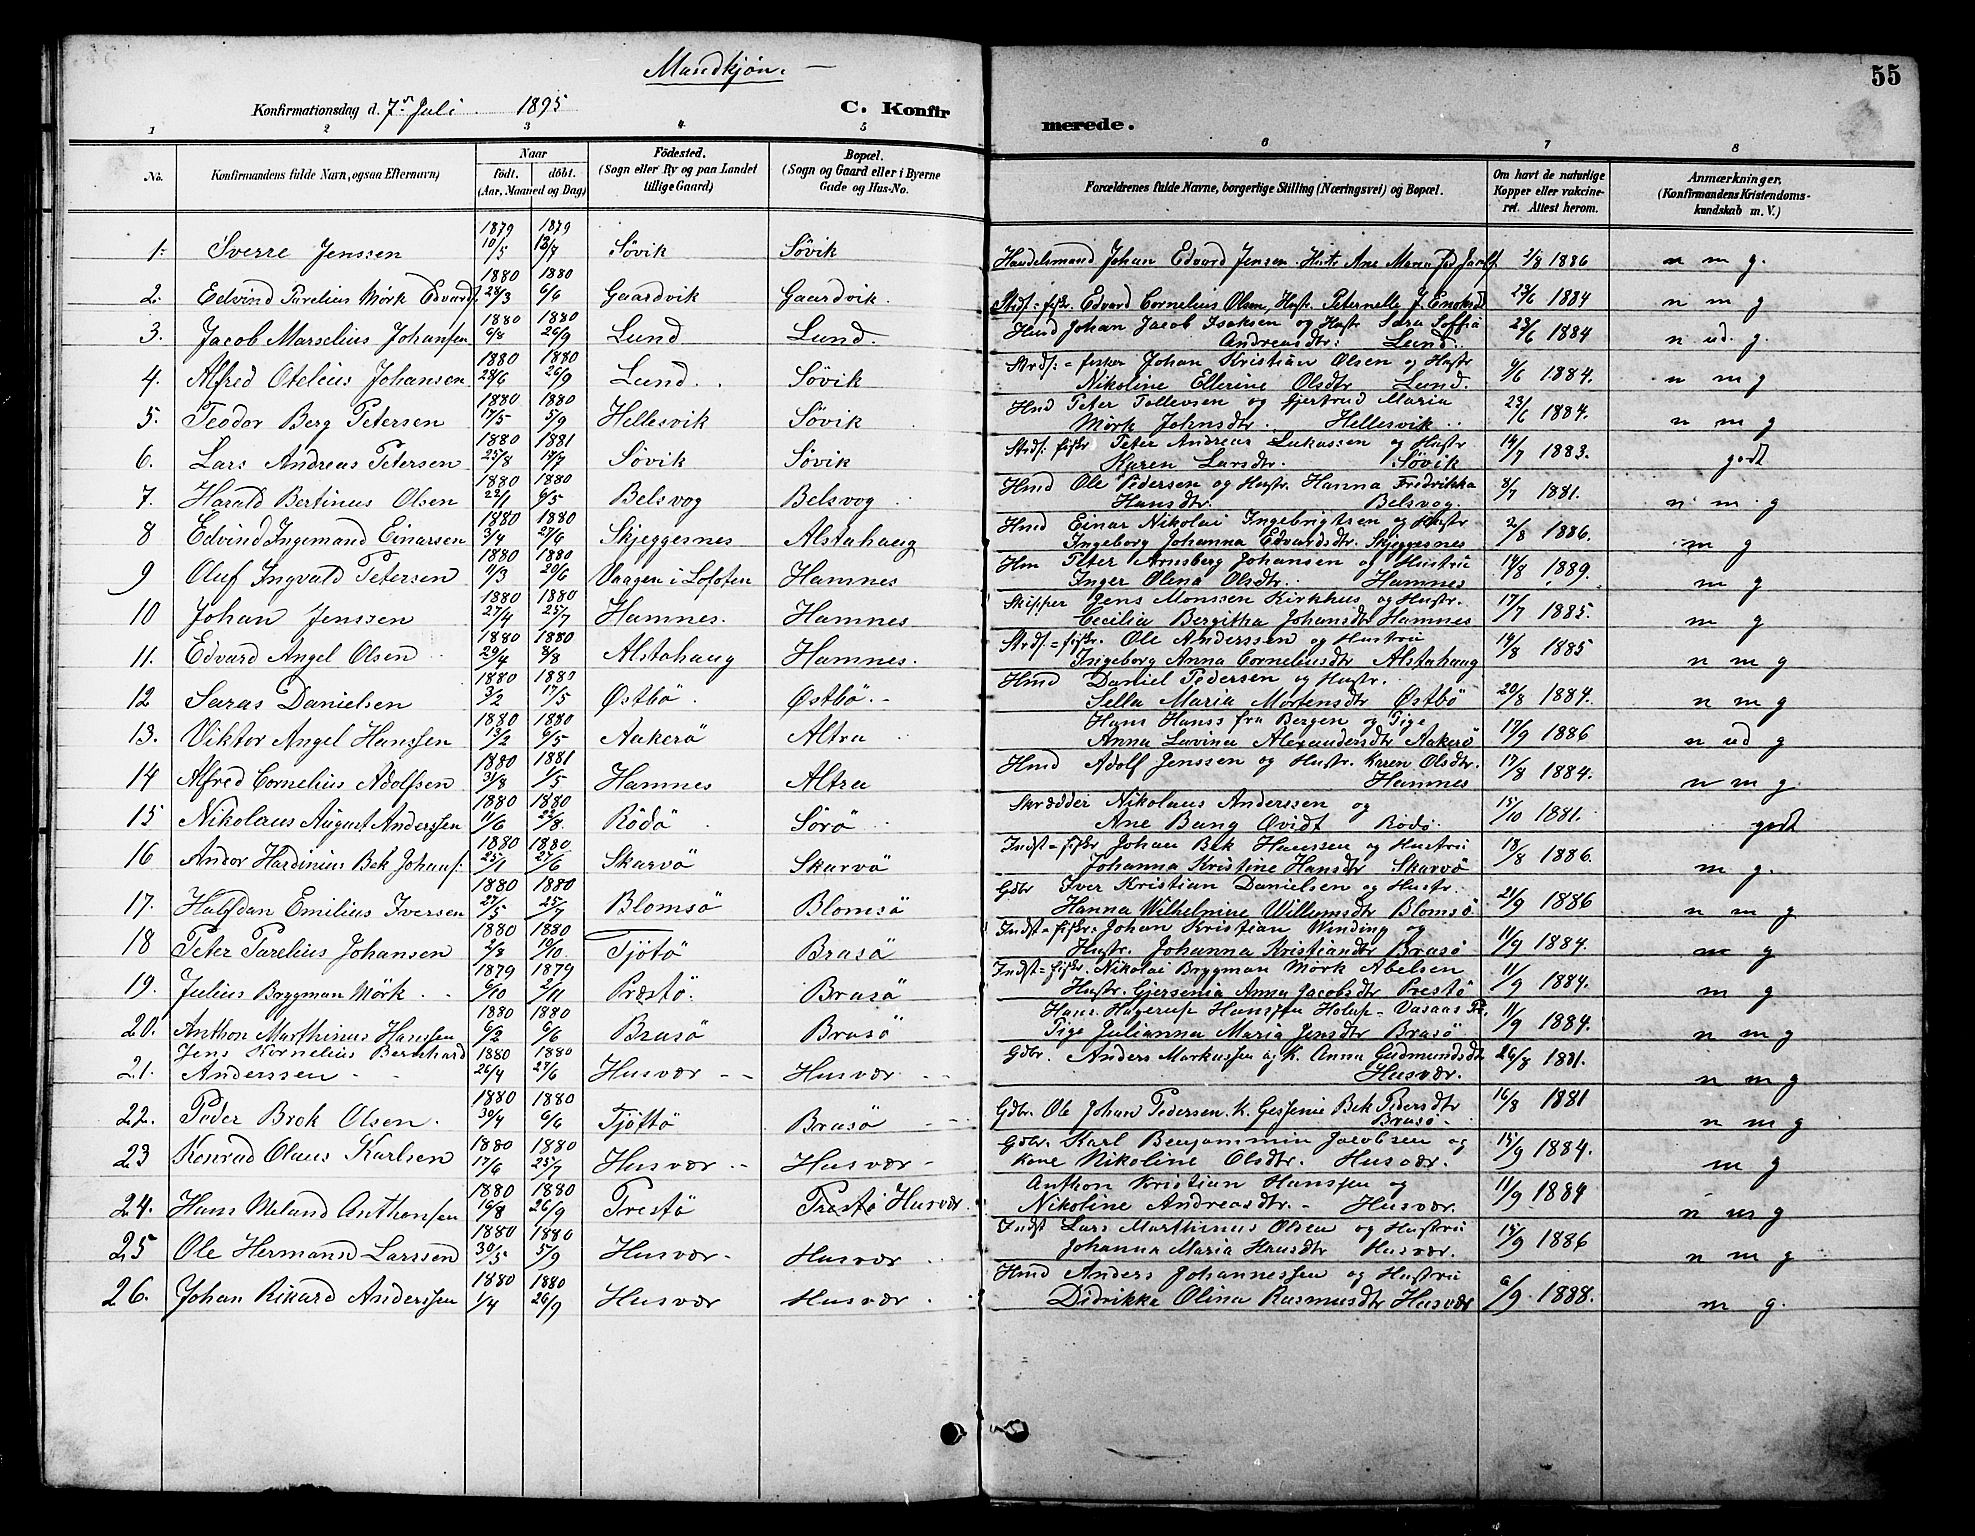 55
Mandkjøn.
Konfirmationsdag d. 7de Juli 1895
C. Konfirmerede.
1 2 3 4 5 6 7 8
No. | Konfirmandens fulde Navn, ogsaa Efternavn) | Naar födt. döbt. (Aar, Maaned og Dag) | Födested. (Sogn eller By og paa Landet tillige Gaard) | Bopæl. (Sogn og Gaard eller i Byerne Gade og Hus-No. | Forældrenes fulde Navne, borgerlige Stilling (Næringsvei) og Bopæl. | Om havt de naturlige Kopper eller vakcineret. Attest herom. | Anmærkninger, (Konfirmandens Kristendomskundskab m. V.)
1. Sverre Jenssen | 1879 10/5 | 1879 13/7 | Søvik | Søvik | Handelsmand Johan Edvard Jensen. Hustr Ane Maria | 2/8 1886 | n m g.
2. Edvind Parelius Mörk Edvards. | 1880 28/3 | 1880 6/6 | Gaardvik | Gaardvik. | Strds=fisk. Edvard Cornelius Olsen, Hustr. Peternelle J. | 23/6 1884 | n m g
3. Jacob Marselius Johansen | 1880 6/8 | 1880 26/9 | Lund | Lund. | Hmd Johan Jacob Isaksen og Hustr Sara Soffia Andreasdtr: Lund. | 23/6 1884 | n ud. g.
4. Alfred Oteleus Johansen | 1880 28/6 | 1880 26/9 | Lund. | Søvik | Strds.=fisker Johan Kristian Olsen og Hustr Nikoline Ellerine Olsdtr Lund. | 6/6 1884. | n m g
5. Teodor Berg Petersen | 1880 17/5 | 1880 5/9 | Hellesvik | Søvik | Hmd Peter Tollevsen og Gjertrud Maria Mörk Johnsdtr. Hellesvik. | 23/6 1884. | n m g
6. Lars Andreas Petersen | 1880 25/8 | 1881 17/7 | Søvik | Søvik | Strds: fiskr Peter Andreas Lukassen og Hustr Karen Larsdtr. Søvik | 14/7 1883. | godt
7. Harald Bertinus Olsen | 1880 22/1 | 1880 6/5 | Belsvog | Belsvog | Hmd Ole Pedersen og Hustr. Hanna Fredrikka Hansdtr. Belsvog. | 8/7 1881. | n m g
8 Edvind Ingemand Einarsen | 1880 3/4 | 1880 27/6 | Skjeggesnes | Alstahaug | Hmd Einar Nikolai Ingebrigtsen og Hustr Ingeborg Johanna Edvardsdtr. Skjeggesnes | 2/8 1886. | m g
9 Oluf Ingvald Petersen | 1880 11/3 | 1880 20/6 | Vaagen i Lofoten | Hamnes | Hm Peter Arnsberg Johansen og Hustru Inger Olina Olsdtr. Hamnes | 14/8 1889. | m g
10 Johan Jenssen | 1880 27/4 | 1880 25/7 | Hamnes. | Hamnes | Skipper Jens Monssen Kirkhus og Hustr. Cecilia Bergitha Johansdtr Hamnes | 17/7 1885. | m g
11. Edvard Angel Olsen | 1880 29/4 | 1880 8/8 | Alstahaug | Hamnes. | Strds.=fiskr. Ole Anderssen og Hustru Ingeborg Anna Corneliusdtr Alstahaug | 19/8 1885 | n m g
12 Saras Danielsen | 1880 3/2 | 1880 17/5 | Østbö | Østbö. | Hmd Daniel Pedersen og Hustr. Sella Maria Mortensdtr Østbö | 20/8 1884. | n m g
13. Viktor Angel Hanssen | 1880 13/2 | 1880 6/5 | Aakerö | Altra | Hans Hanss fra Bergen og Pige Anna Lavina Alexandersdtr Aakerö | 17/9 1886 | n ud g
14 Alfred Cornelius Adolfsen | 1880 31/8 | 1881 1/5 | Hamnes | Altra | Hmd Adolf Jenssen og Hustr. Karen Olsdtr. Hamnes | 17/8 1884. | n m g.
15 Nikolaus August Anderssen | 1880 11/6 | 1880 22/8. | Rödö | Sörö | Skrædder Nikolaus Anderssen og Ane Bang Qvidt Rödö. | 15/10 1881. | godt
16 Andor Hardinius Bek Johans. | 1880 25/1 | 1880 27/6 | Skarvö | Skarvö | Indst=fiskr Johan Bek Hanssen og Hustru Johanna Kristine Hansdtr Skarvö | 18/8 1886. | m g.
17. Halfdan Emilius Iversen | 1880 27/5 | 1880 25/7 | Blomsö | Blomsö | Gdbr Iver Kristian Danielsen og Hustr. Hanna Wilhelmine Willumsdtr Blomsö | 21/9 1886 | n m g
18 Peter Parelius Johansen | 1880 2/8 | 1880 10/10. | Tjötö | Brasö | Indst=fiskr. Johan Kristian Winding og Hustr. Johanna Kristiansdtr Brasö | 11/9 1884. | m g
19. Julius Brygman Mörk. | 1879 6/10 | 1879 2/11 | Præstö. | Brasö | Indst=fiskr. Nikolai Brygman Mörk Abelsen Hustr. Gjersenia Anna Jacobsdtr Prestö | 11/9 1884. | m g
20. Anthon Marthinus Hanssen | 1880 6/2 | 1880 6/6 | Brasö | Brasö | Hans Hagerup Hanssen Holup- Vasaas Pige Julianna Maria Jensdtr Brasö | 11/9 1884. | n m g
21. Jens Kornelius Bernhard Anderssen | 1880 26/4 | 1880 27/6 | Husvær | Husvær | Gdbr. Anders Markussen og K. Anna Gudmundsdtr Husvær. | 26/8 1881. | n m g
22. Peder Brok Olsen. | 1880 30/4 | 1880 6/6 | Tjöttö | Brasö | Gdbr. Ole Johan Pedersen. K. Gessenie Bek Pedersdtr Brasö | 16/8 1881 | n m g
23 Konrad Olaus Karlsen | 1880 17/6 | 1880 25/7 | Husvær | Husvær | Gdbr. Karl Benjammin Jacobsen og Kone Nikoline Olsdtr. Husvær. | 15/9 1884. | m g
24. Hans Meland Anthonsen | 1880 16/8 | 1880 26/9 | Prestö | Prestö Husvær. | Anthon Kristian Hanssen og Nikoline Andreasdtr. Husvær. | 11/9 1884 | n m g
25 Ole Hermand Larssen | 1880 30/5 | 1880 5/9 | Husvær | Husvær | Indst Lars Marthinus Olsen og Hustru Johanna Maria Hansdtr Husvær. | 15/9 1886 | n m g
26. Johan Rikard Anderssen | 1880 1/4 | 1880 26/9 | Husvær | Husvær | Hmd Anders Johannessen og Hustru Didrikka Olina Rasmusdtr Husvær | 6/9 1888. | m g.